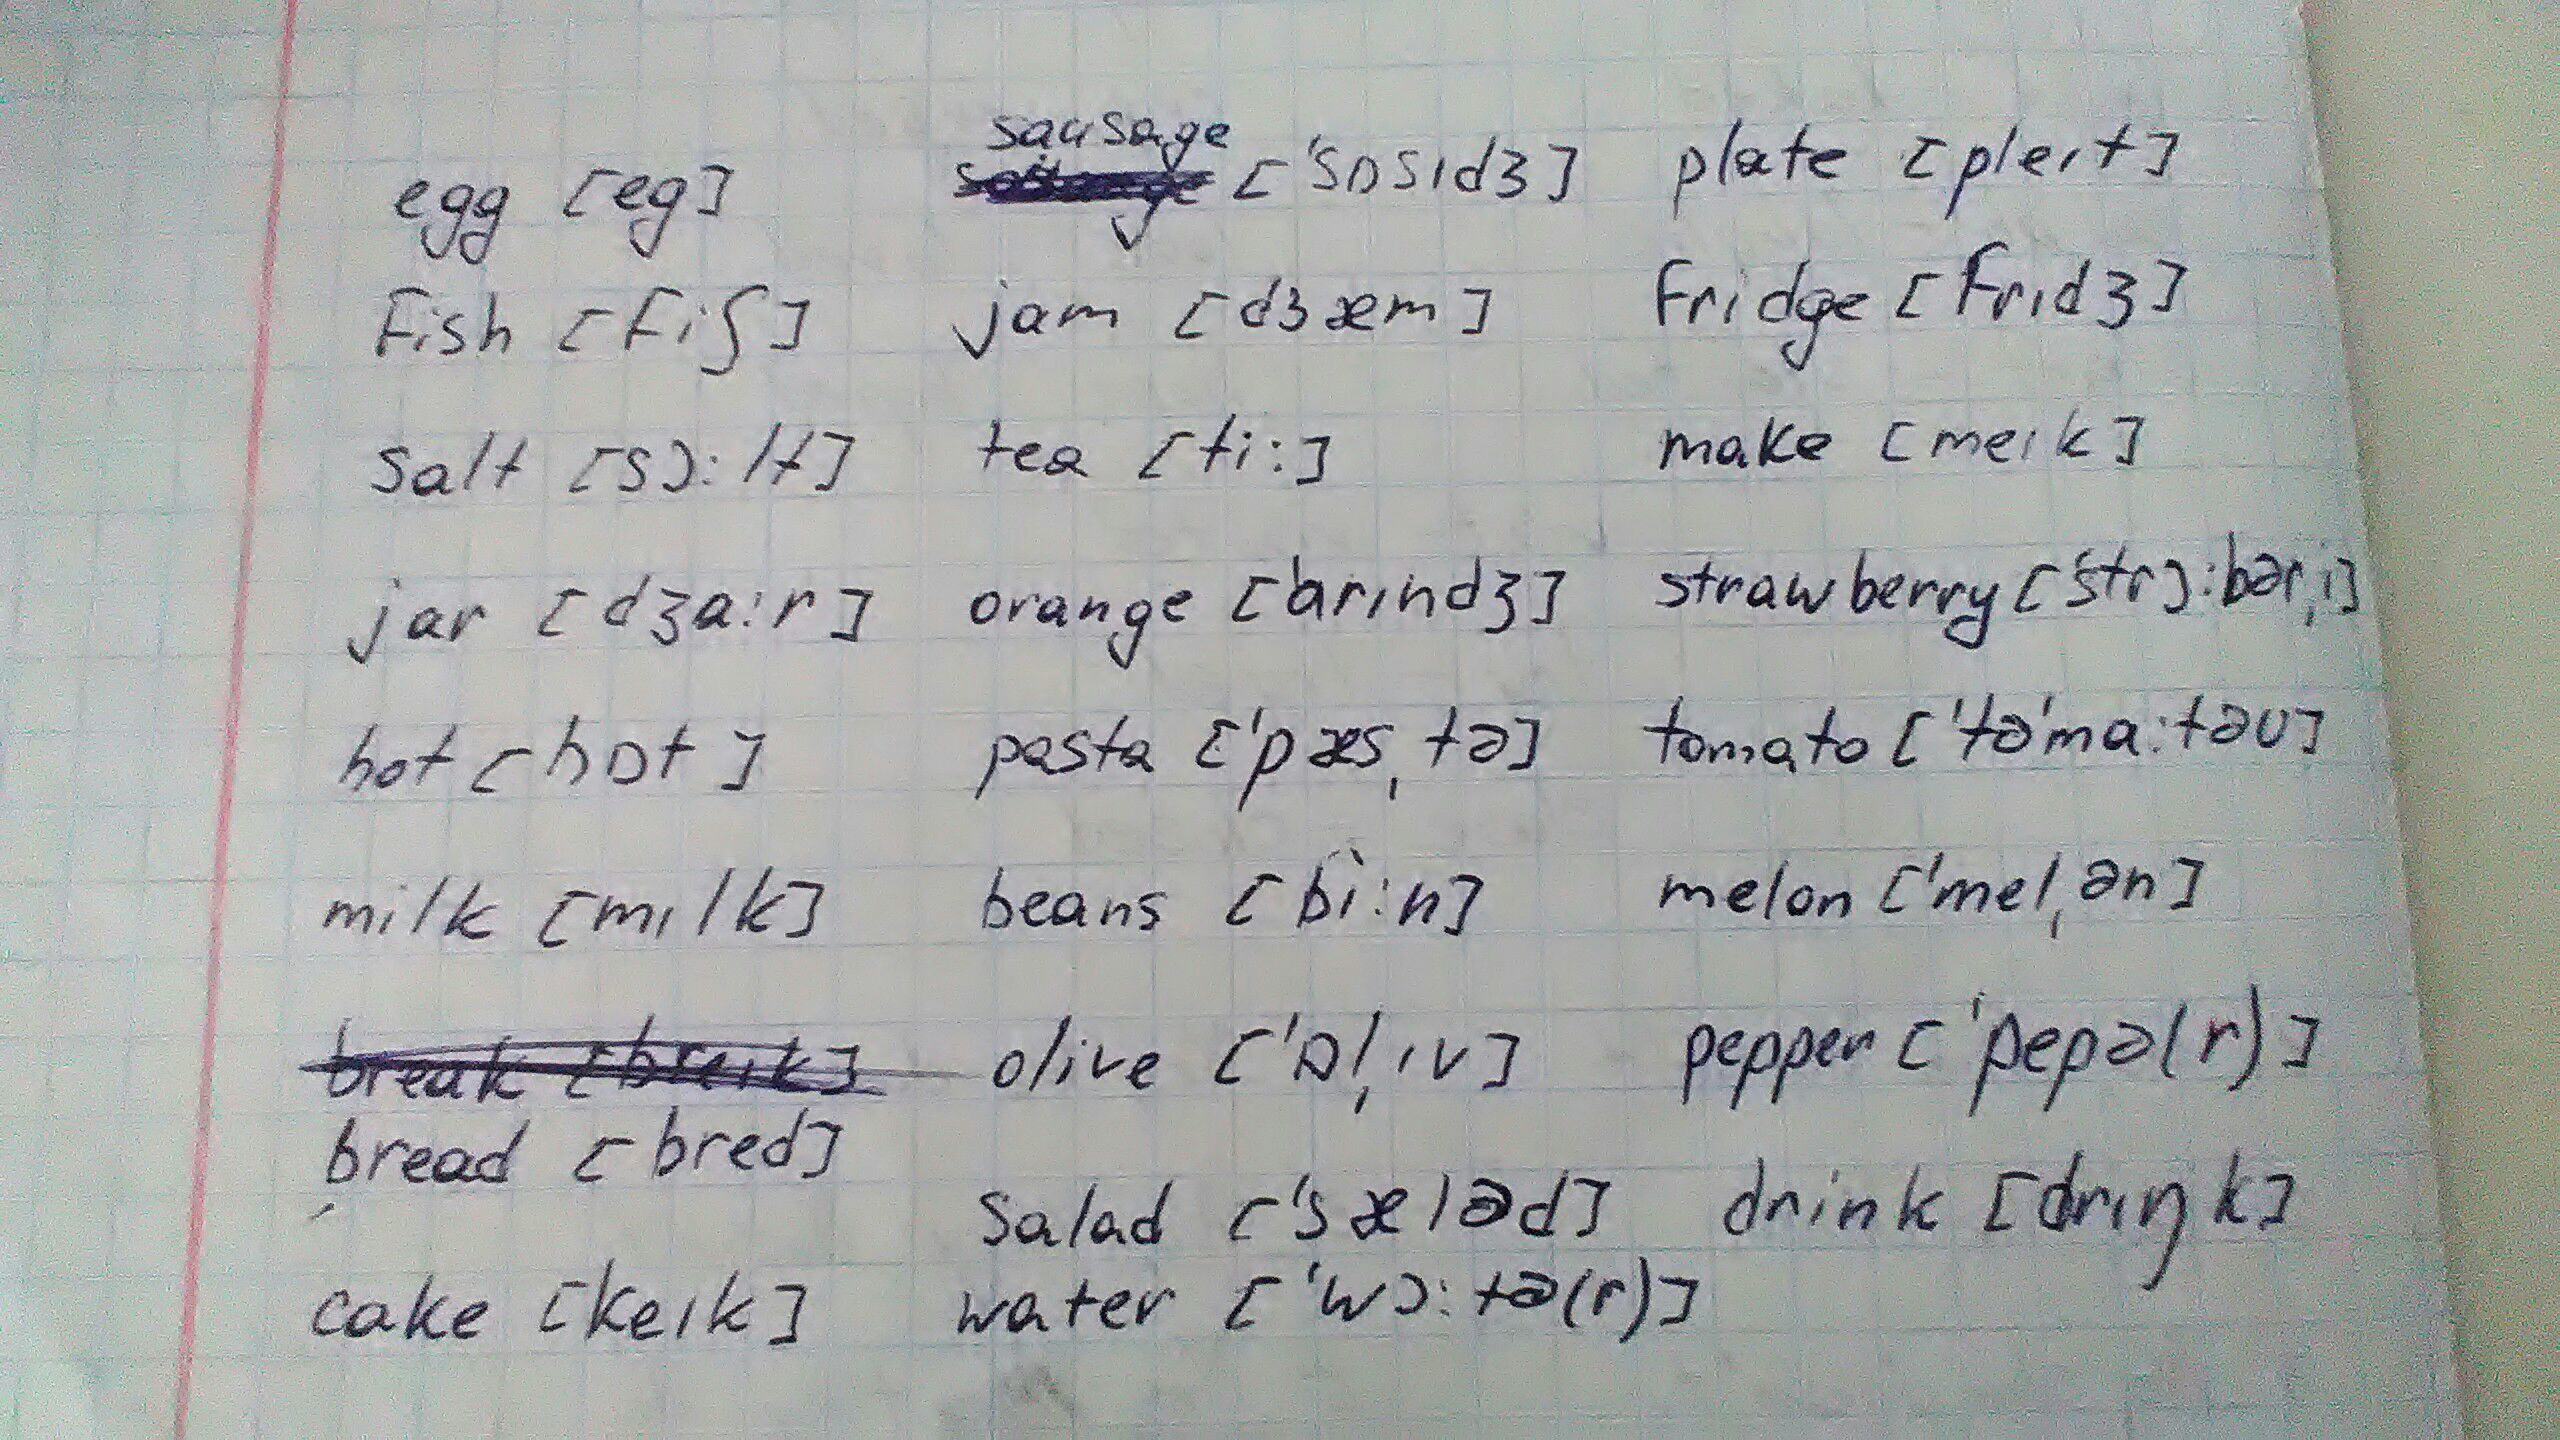 egg [eg]
fish [fiʃ]
salt [sɔ:lt]
jar [dʒa:r]
hot [hɒt]
milk [mılk]
break [breık]
bread [bred]
cake [keık]
sausage ['sɒsıdʒ]
jam [dʒæm]
tea [ti:]
orange ['arındʒ]
pasta ['pæsˌtə]
beans [bi:n]
olive ['ɒlˌıv]
salad ['sæləd]
water ['wɔ:tə(r)]
plate [pleıt]
fridge [frıdʒ]
make [meık]
strawberry ['strɔ:bərˌi]
tomato ['tə'ma:təʊ]
melon ['melˌən]
pepper ['pepə(r)]
drink [drıŋk]